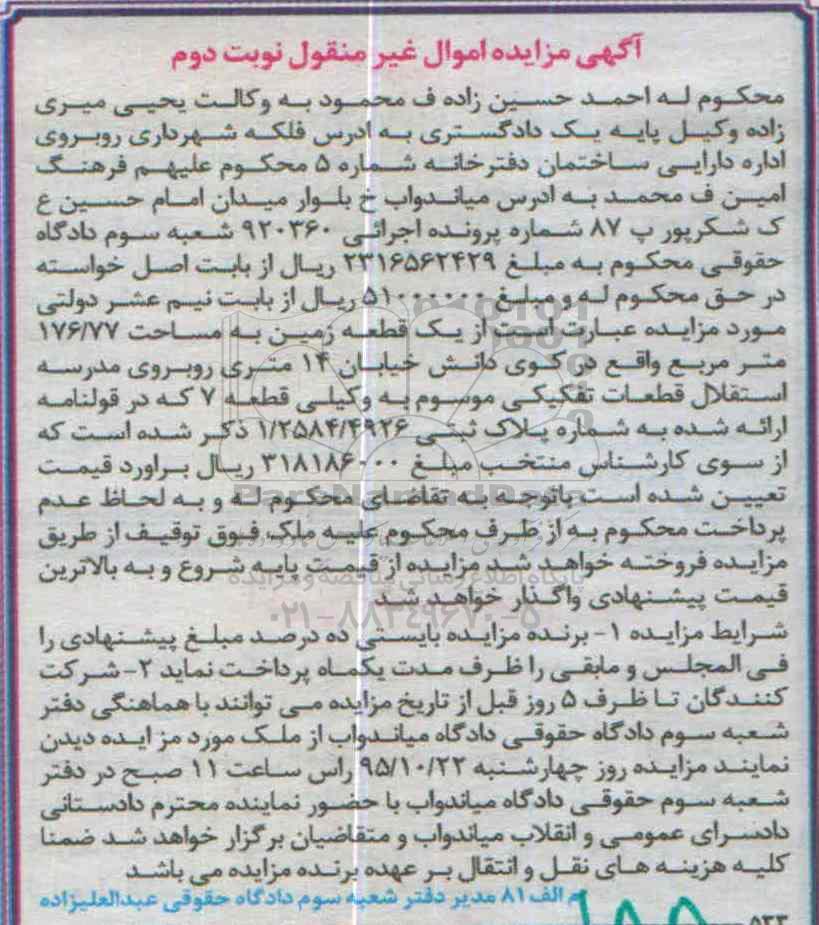 آگهی مزایده اموال غیر منقول نوبت دوم
محکوم له احمد حسین زاده ف محمود به وکالت یحیی میری
زاده وکیل پایه یک دادگستری به ادرس فلکه شهرداری روبروی
اداره دارایی ساختمان دفترخانه شماره ۵ محکوم علیهم فرهنگ
امین ف محمد به ادرس میاندواب خ بلوار میدان امام حسین ع
ک شکرپور پ ۸۷ شماره پرونده اجرائی ۹۲۰۳۶۰ شعبه سوم دادگاه
حقوقی محکوم به مبلغ ۲۳۱۶۵۶۲۴۲۹ ریال از بابت اصل خواسته
در حق محکوم له و مبلغ ۵۱۰۰۰۰۰۰ ریال از بابت نیم عشر دولتی
مورد مزایده عبارت است از یک قطعه زمین به مساحت ۱۷۶/۷۷
متر مربع واقع در کوی دانش خیابان ۱۴ متری روبروی مدرسه
استقلال قطعات تفکیکی موسوم به وکیلی قطعه ۷ که در قولنامه
ارائه شده به شماره پلاک ثبتی ۱/۲۵۸۴/۴۹۲۶ ذکر شده است که
از سوی کارشناس منتخب مبلغ ۳۱۸۱۸۶۰۰۰ ریال براورد قیمت
تعیین شده است باتوجه به تقاضای محکوم له و به لحاظ عدم
پرداخت محکوم به از طرف محکوم علیه ملک فوق توقیف از طریق
مزایده فروخته خواهد شد مزایده از قیمت پایه شروع و به بالاترین
پایگاه اطلاع رسانی مناقصه و مزایده
قیمت پیشنهادی واگذار خواهد شد
۰۲۱-۸۸۳۴۹۶۷۰-۵
شرایط مزایده ۱- برنده مزایده بایستی ده درصد مبلغ پیشنهادی را
فی المجلس و مابقی را ظرف مدت یکماه پرداخت نماید ۲- شرکت
کنندگان تا ظرف ۵ روز قبل از تاریخ مزایده می توانند با هماهنگی دفتر
شعبه سوم دادگاه حقوقی دادگاه میاندواب از ملک مورد مز ایده دیدن
نمایند مزایده روز چهارشنبه ۹۵/۱۰/۲۲ راس ساعت ۱۱ صبح در دفتر
شعبه سوم حقوقی دادگاه میاندواب با حضور نماینده محترم دادستانی
دادسرای عمومی و انقلاب میاندواب و متقاضیان برگزار خواهد شد ضمنا
کلیه هزینه های نقل و انتقال بر عهده برنده مزایده می باشد
م الف ۸۱ مدیر دفتر شعبه سوم دادگاه حقوقی عبدالعلیزاده
۵۳۳